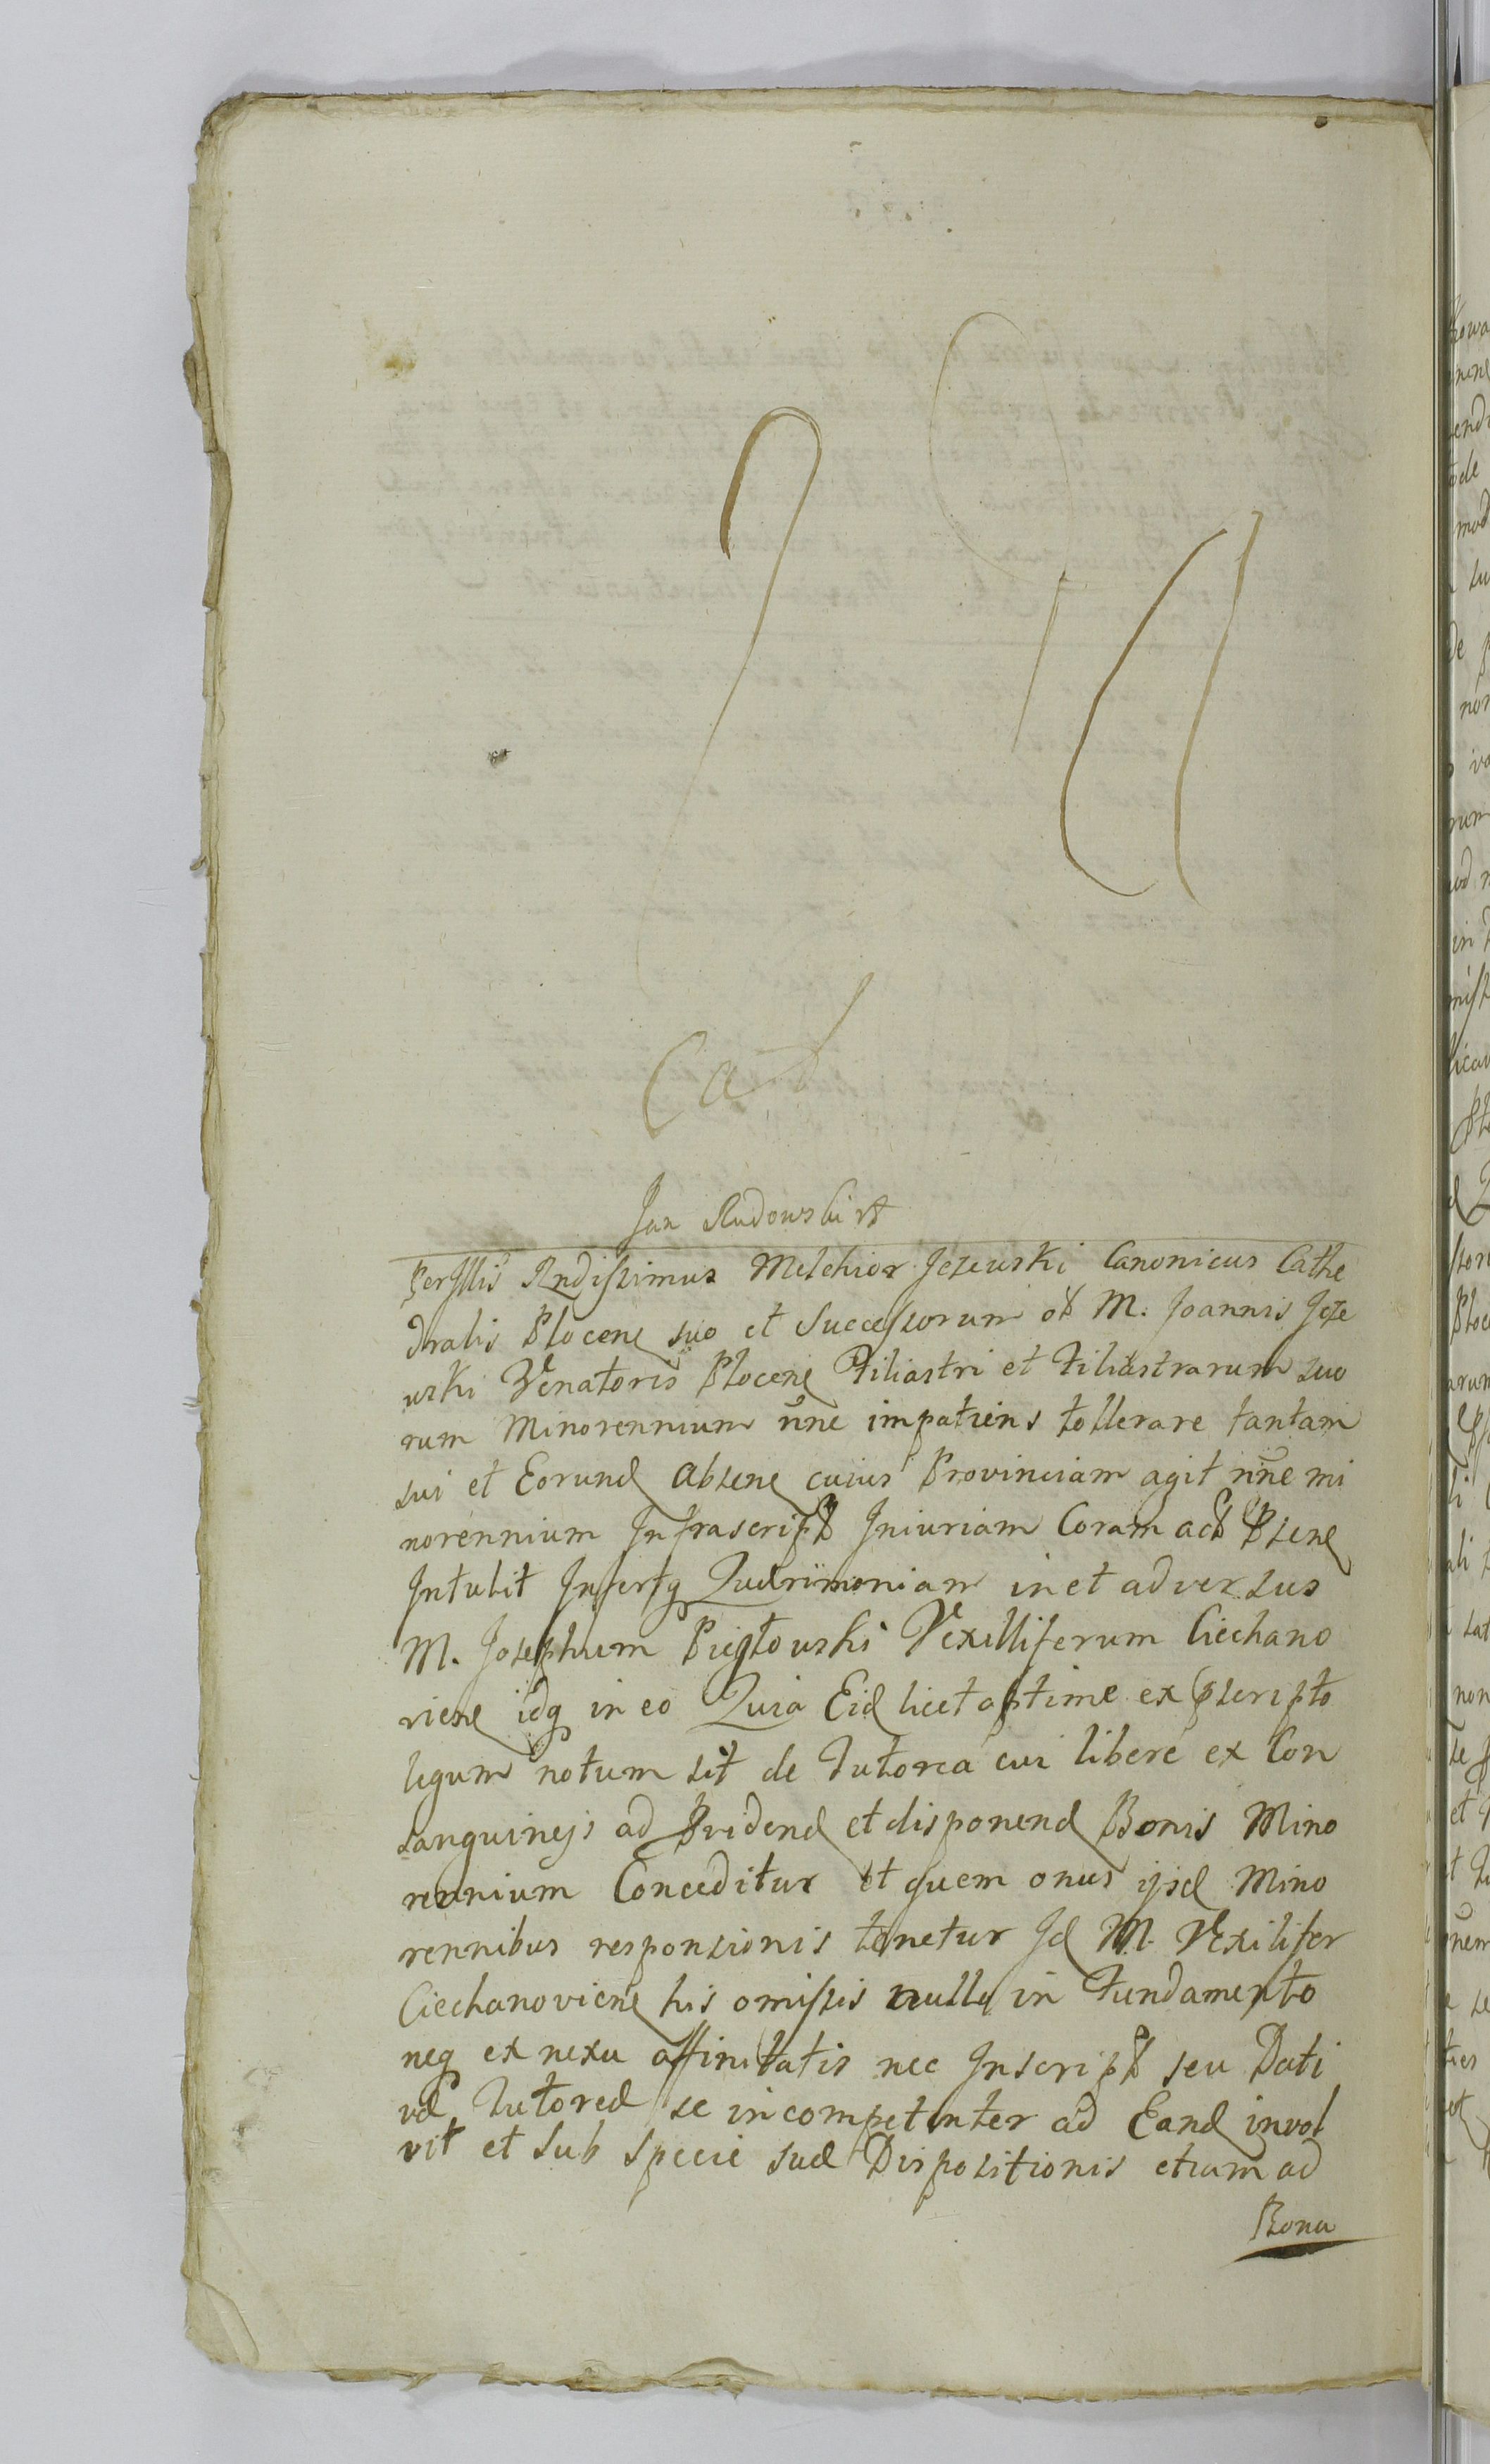 Cad
Jan Rudowski
Perjllis Rndissimus Melchior Jezewski Canonicus Cathe
dralis Plocenẽ suo et Successorum ol M. Joannis Jeze
wski Venatoris Plocenẽ Filiastri et Filiastrarum suo
rum Minorennium nñe impatiens tollerare tantam
sui et Eorund absenẽ cuius Provinciam agit nñe mi
norennium Infrascript Injuriam Coram act psenẽ
Intulit Infertq Querimoniam in et adversus
M. Josephum Piglowski Vexilliferum Ciechano
vienẽ idq in eo Quia Eid licet optime ex pscripto
legum notum sit de Tutorea cui libere ex Con
sanguineis ad Pvidend et disponend Bonis Mino
rennium Conceditur et quem onus ijsd Mino
rennibus responsionis tenetur Id M. Vexilifer
Ciechanovienẽ his omissis nullo in Fundamento
neq ex nexu affinitatis nec Inscript seu Dati
vae Tutoreae se incompetenter ad Eand invol
vit et sub specie suae Dispositionis etiam ad
Bona